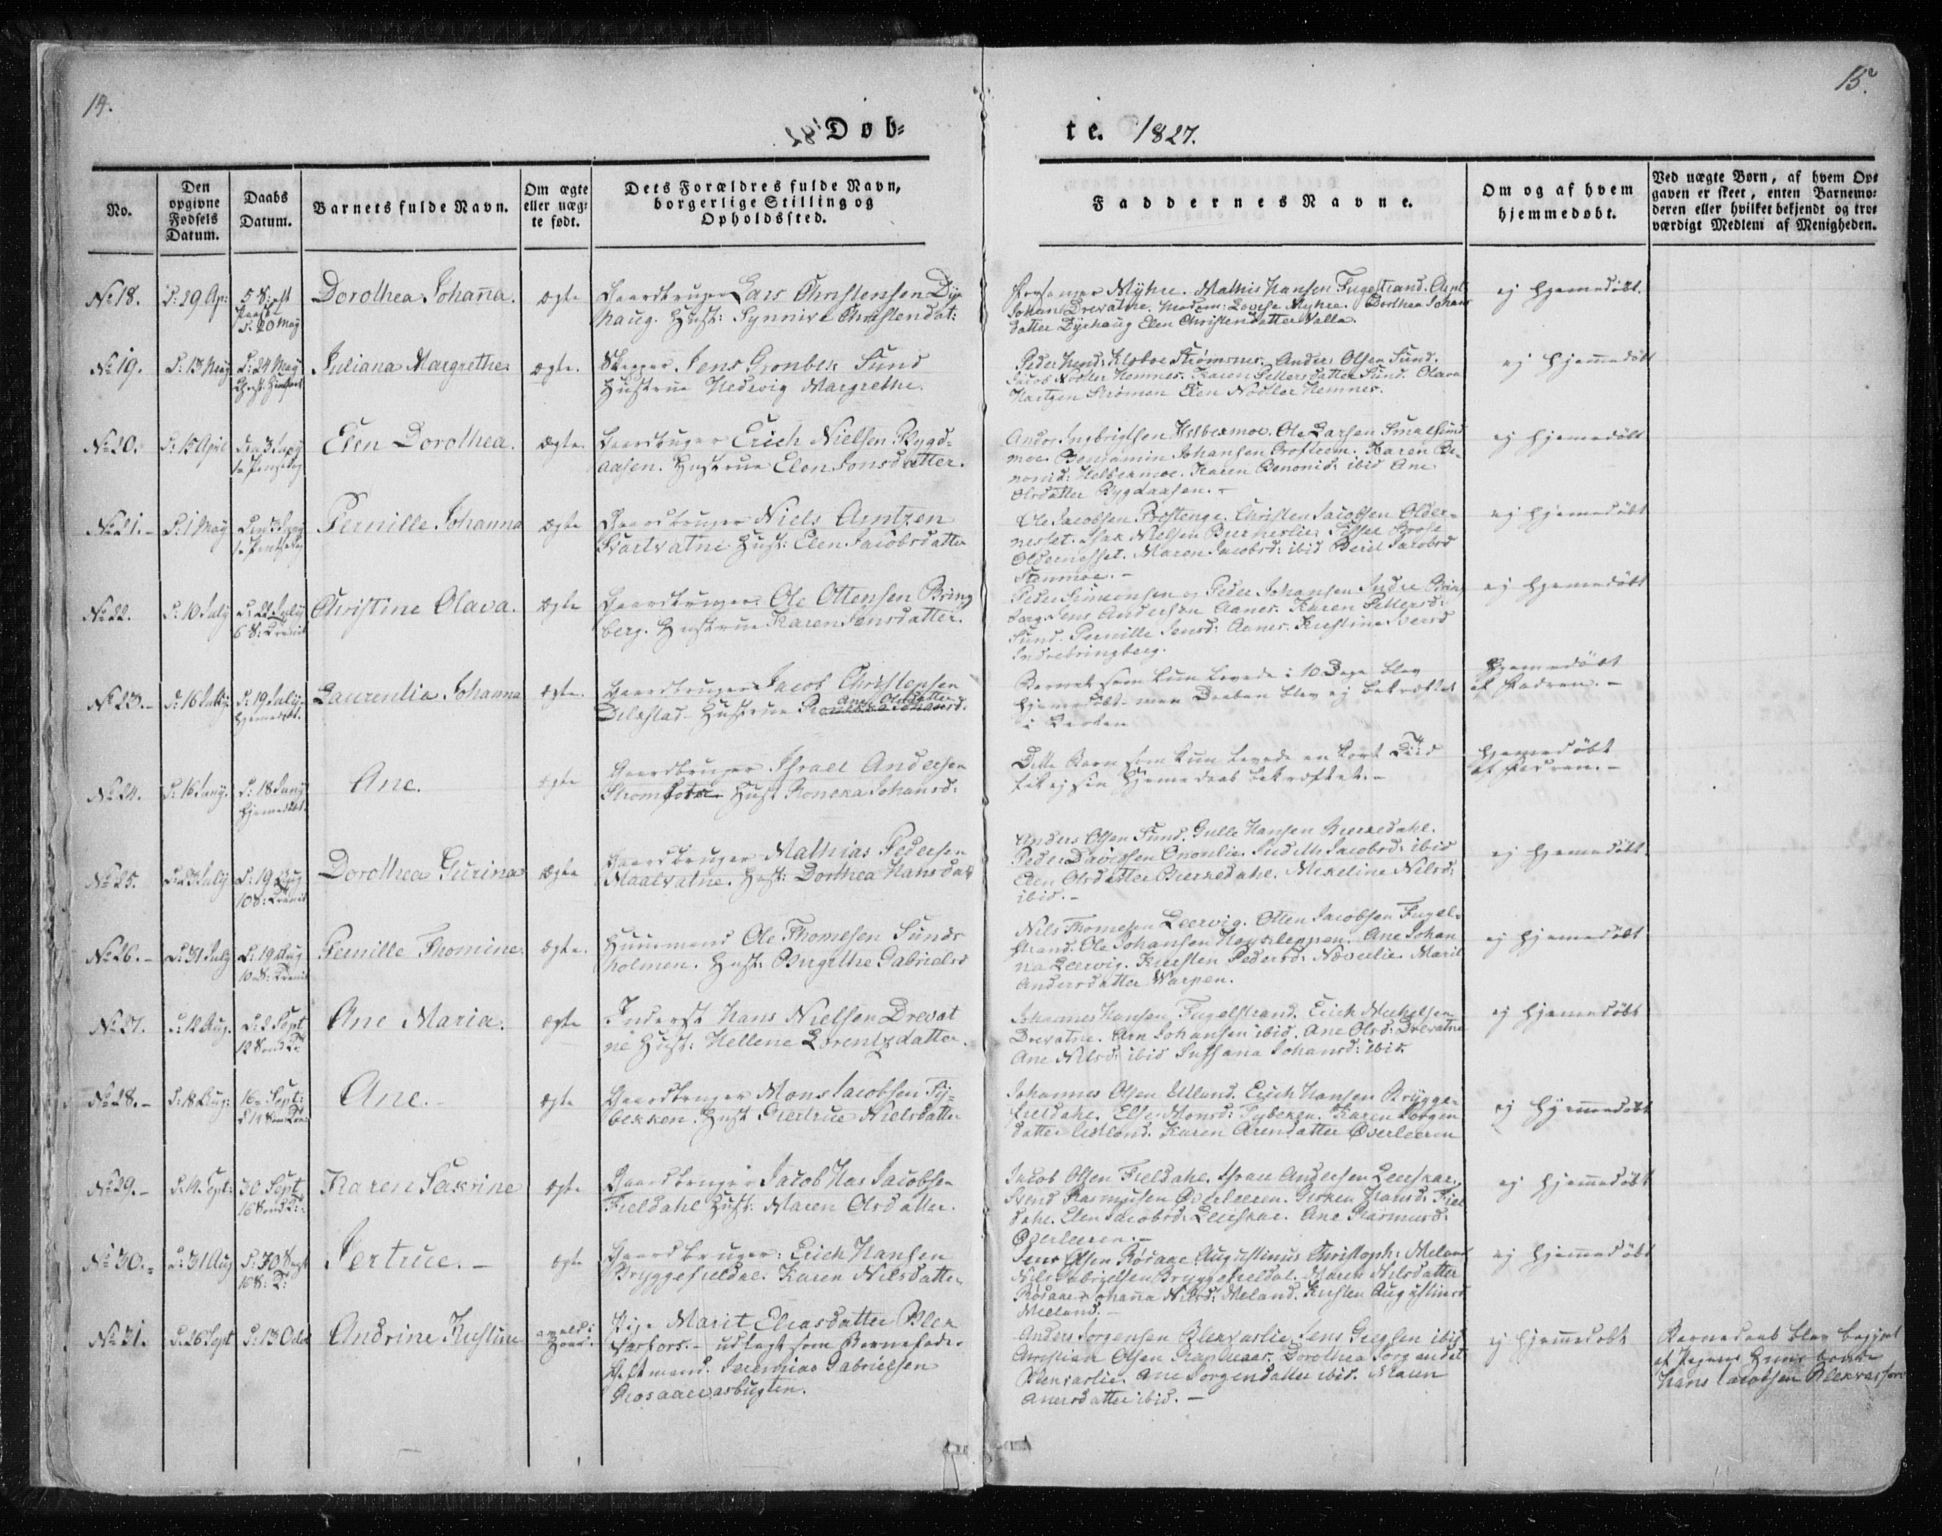 14.
15.
Døb-
te. 1827.
No.
Den opgivne Fødsels Datum.
Daabs Datum.
Barnets fulde Navn.
Om ægte eller uægte født.
Dets Forældres fulde Navn, borgerlige Stilling og Opholdssted.
Faddernes Navne.
Om og af hvem hjemmedøbt.
Ved uægte Børn, af hvem Opgaven er skeet, enten Barnemoderen eller hvilket bekjendt og troværdigt Medlem af Menigheden.
No 18.
D: 29 Ap:
D: 20 May
Dorothea Johanna.
ægte
Gaardbruger Lars Christensen Dyr
haug. Hust: Synnive Christensdat:
Mÿhre. Mathis Hansen Fugelstrand.
Johan Drevatne. Madam: Lovise Myhre. Dorthea Johans
datter Dyrhaug Elen Christensdatter Valla.
ej hjemedøbt.
No 19.
D: 13 May
D: 24 May
Juliana Margrethe
ægte.
Jens Grønbek Sund
Hustrue Hedevig Margrethe.
Strømsnes. Anders Olsen Sund.
Jacob Nøstler Hemnes. Karen Pettersdatter Sund. Olava
Hartgen Strømen Elen Nøstler Hemnes.
ej hjemedøbt
No 20.
D: 15 April
Elen Dorothea.
ægte.
Gaardbruger Erich Nielsen Bygd-
aasen. Hustrue Elen Jonsdatter.
Andos Ingbrigtsen Helbermoe. Ole Larsen
moe. Benjamin Johansen Karen Be-
nonid: Helbermoe. Karen Benonid: ibid Ane
Olsdatter Bygdaasen.
ej hjemedøbt
No 21.
D: 1 May
Pernille Johanna
ægte
Gaardbruger Niels Arntzen
Svartvatne Hust: Elen Jacobsdatter
Ole Jacobsen Prestenge. Christen Jacobsen Older-
nesset. Isak Nielsen
Oldernesset. Maren Jacobsd: ibid Berit Jacobsd
ej hjemedøbt
No 22.
D: 10 July
D: 22 July
Christine Olava.
ægte
Gaardbruger Ole Ottensen Bring
berg. Hustrue Karen Jensdatter.
Peder Simonsen og Peder Johansen Indre Brin
berg. Jens Andersen Aanes. Karen Pettersd:
Sund. Pernille Jensd: Aanes. Kirstine Iversd
Indrebringberg.
ej hjemedøbt
No 23.
D: 16 July
D: 19 July
hjemedøbt.
Laurentia Johanna
ægte.
Gaardbruger Jacob Christensen
Dilkestad Hustrue Ane Olsdatter
Barnet som kun levede i 10 Dage blev
hjemedøbt men Daaben blev ej bekræftet
i Kirken
Hjemedøbt
af Fadren.
No 24.
D: 16 Juny.
D: 18 Juny
hjemedøbt.
Ane.
ægte
Gaardbruger Israel Andersen
Strømfors Hust Roneka Johansd:
Dette Barn som kun levede en kort Tiid
fik ej sin Hjemedaab bekræftet.
Hjemedøbt
af Fadren.
No 25.
July
D: 19 Aug
Dorothea Gurina
ægte
Gaardbruger Mathias Pedersen
Maalvatne. Hust: Dorthea Hansdat
Anders Olsen Sund. Gulle Hansen Bierkedahl.
Peder Davidsen Oponlie. Judith Jacobsd: ibid
Elen Olsdatter Bierkedahl. Mekeline Nilsd:
ibid.
ej hjemedøbt
No 26.
D: 31 July
D: 19 Aug
Pernille Thomine.
ægte.
Huusmand Ole Thomesen Sunds
holmen. Hust: Birgithe Gabrielsd
Nils Thomesen Leervig. Otten Jacobsen Fugel-
strand. Ole Johansen Høyskleppen. Ane Johan
na Leervig. Kirsten Pedersd: Nævelie. Marit
Andersdatter Warpen.
ej hjemedøbt
No 27.
D: 12 Aug.
D: 2 Sept
Ane Maria.
ægte
Inderst Hans Nielsen Drevat
ne Hust: Hellene Lorentzdatter.
Johannes Hansen Fugelstrand. Erich Michelsen
Drevatne. Arn Johansen ibid. Ane Olsd: Drevatne
Ane Nilsd: ibid Susana Johansd: ibid.
ej hjemedøbt
No 28.
D: 18 Aug:
16 Sept:
Ane.
ægte
Gaardbruger Mons Jacobsen Ty-
bekken. Hust Giertrue Nielsdatter
Johannes Olsen Utland. Erich Hansen Brÿgge-
fieldahl. Else Monsd: Tybeken. Karen Jørgen
datter Utland. Karen Arensdatter Øverleeren
ej hjemmedøbt
No 29.
D: 14 Sept:
30 Sept
Karen Saxrine
ægte
Gaardbruger Jacob Has Jacobsen
Fieldahl Hust: Maren Olsdatter.
Jacob Olsen Fieldahl. Israel Andersen Leerskar.
Svend Rasmusen Øverleeren. Hansd: Fiel
dahl. Elen Jacobsd: Leerskar. Ane Rasmusd:
Øverleeren.
ej hjemmedøbt
No 30.
D: 31 Aug
D: 30 Sept
Jertrue.
ægte
Gaardbruger: Erich Hansen
Bryggefieldal. Karen Nilsdatter.
Jens Olsen Rødaae Augustinus Christoph: Meland
Nils Gabrielsen Bryggefieldal. Maren Nilsdatter
Rødaae Johanna Nilsd: Meland. Kirsten Augustinusd
Meland.
ej hjemedøbt
No 31.
D: 26 Sept
D: 13 Octob
Andrine Kirstine
Pige Marit Eliasdatter Blek
varfors. udlagt som Barnefader
Jeremias Gabrielsen
Rosaaevasbugten.
Anders Jørgensen Blekvaslie. Jens ibid
Christian Olsen Dorothea Jørgensdat
Blekvaslie. Ane Jørgensdatter ibid. Maren
Andersdatter ibid.
ej hjemmedøbt
Barnedaab blev begjert
af Pigens
Hans Jacobsen Blekvasfors